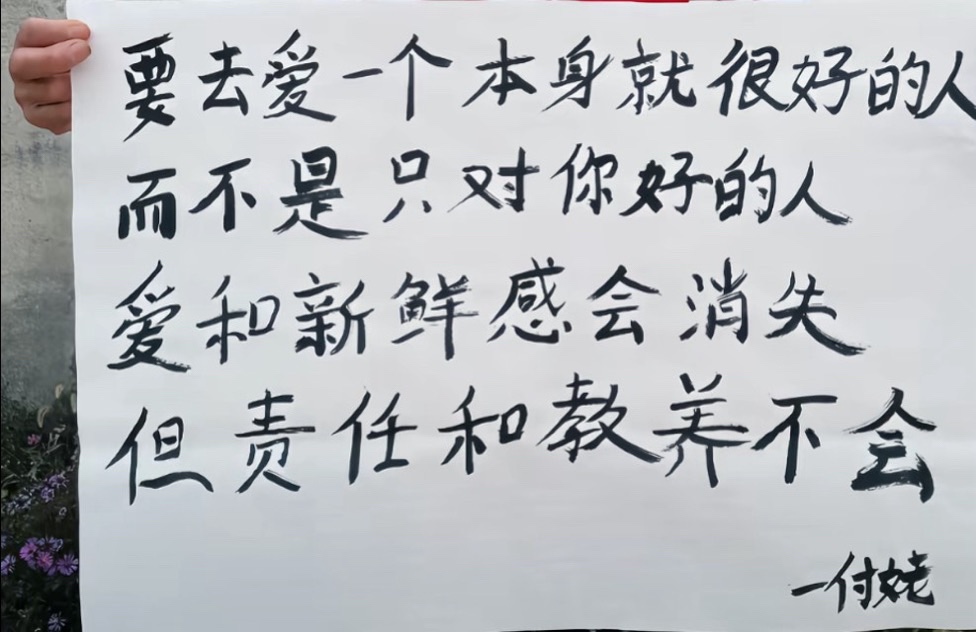 要去爱一个本身就很好的人
而不是只对你好的人
爱和新鲜感会消失
但责任和教养不会
一付姥